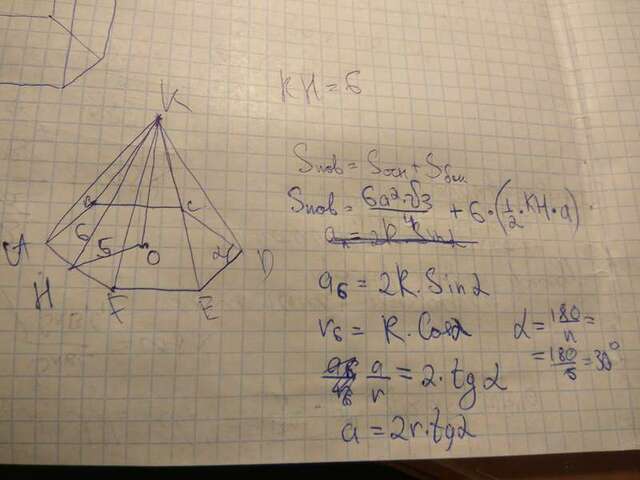 KH = 6
K
a
c
A
6
5
O
2
D
H
F
E
Sпов = Sосн + Sбіч
Sпов = 6a²·√3/4 + 6·(1/2·KH·a)
a₆ = 2R·Sinα
r₆ = R·Cosα
α = 180/n =
= 180/6 = 30°
a/r = 2·tgα
a = 2r·tgα